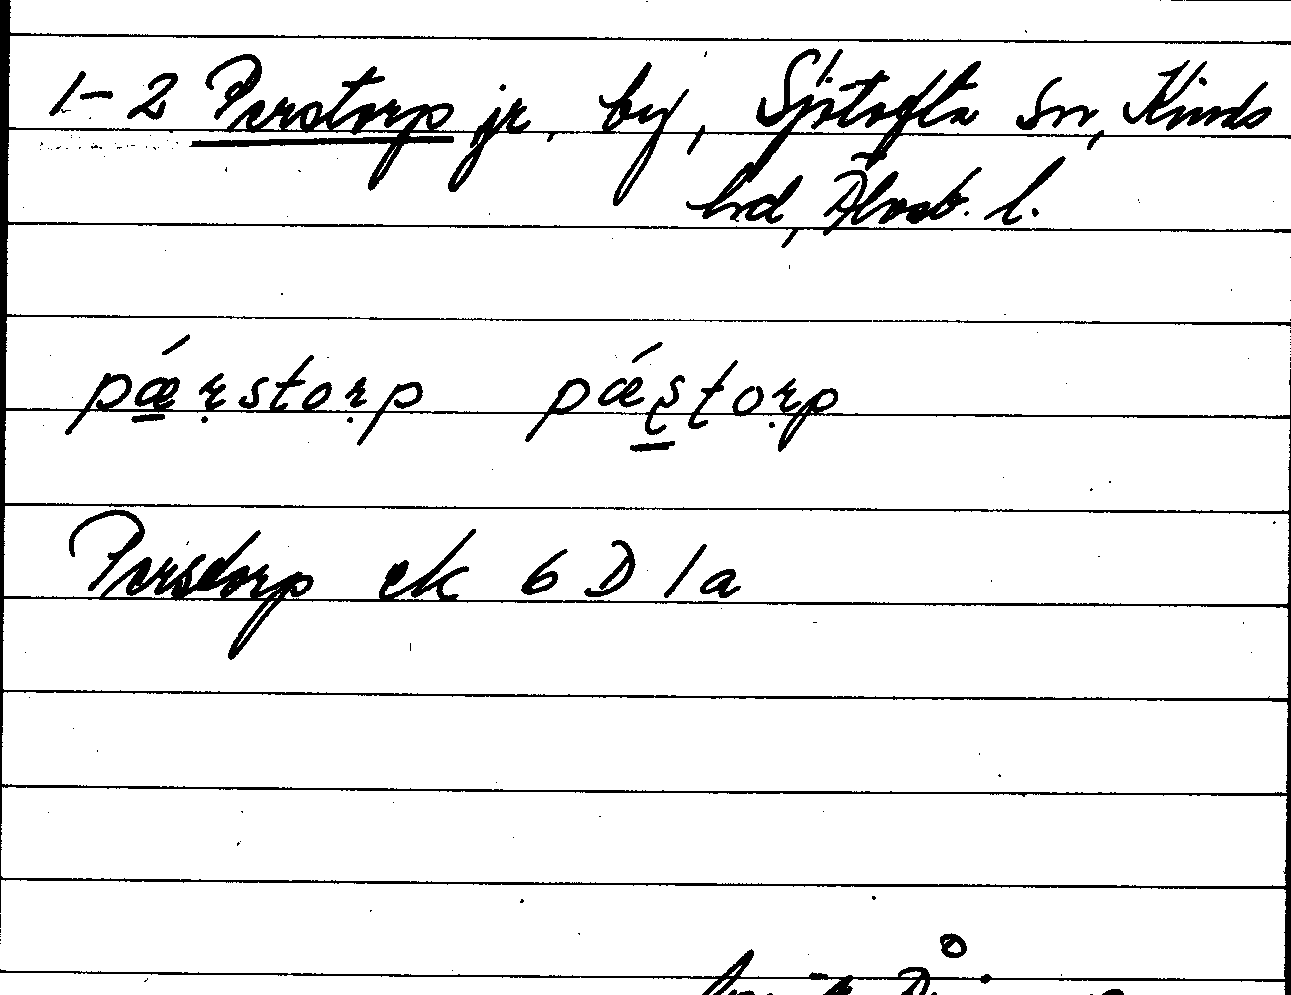 1-2 Parstorp jr, by, Sjötofta sn, Kinds
hd, Älvsb. l.
pǽ̱ṛstoṛp pǽʂ̱ʈoṛp
Parstorp ek 6 D 1a